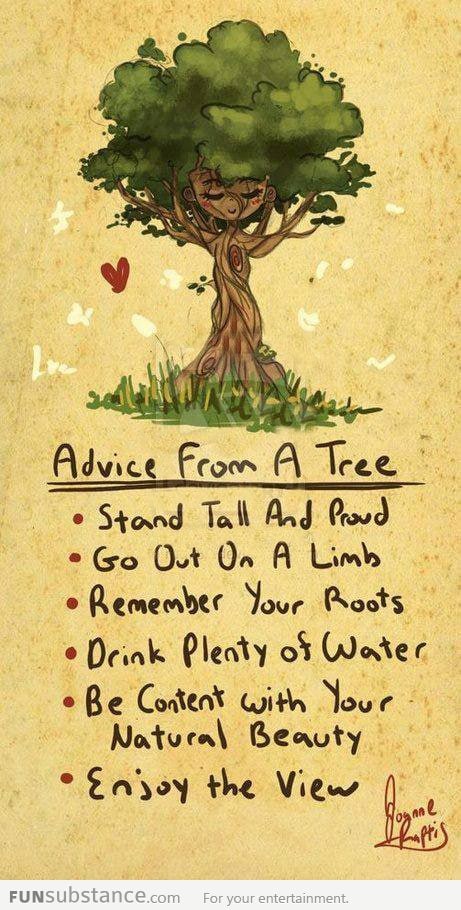 Advice From A Tree
• Stand Tall And Proud
• Go Out On A Limb
• Remember Your Roots
• Drink Plenty of Water
• Be Content with Your
Natural Beauty
• Enjoy the View
Joanne
Raptis
FUNsubstance.com For your entertainment.